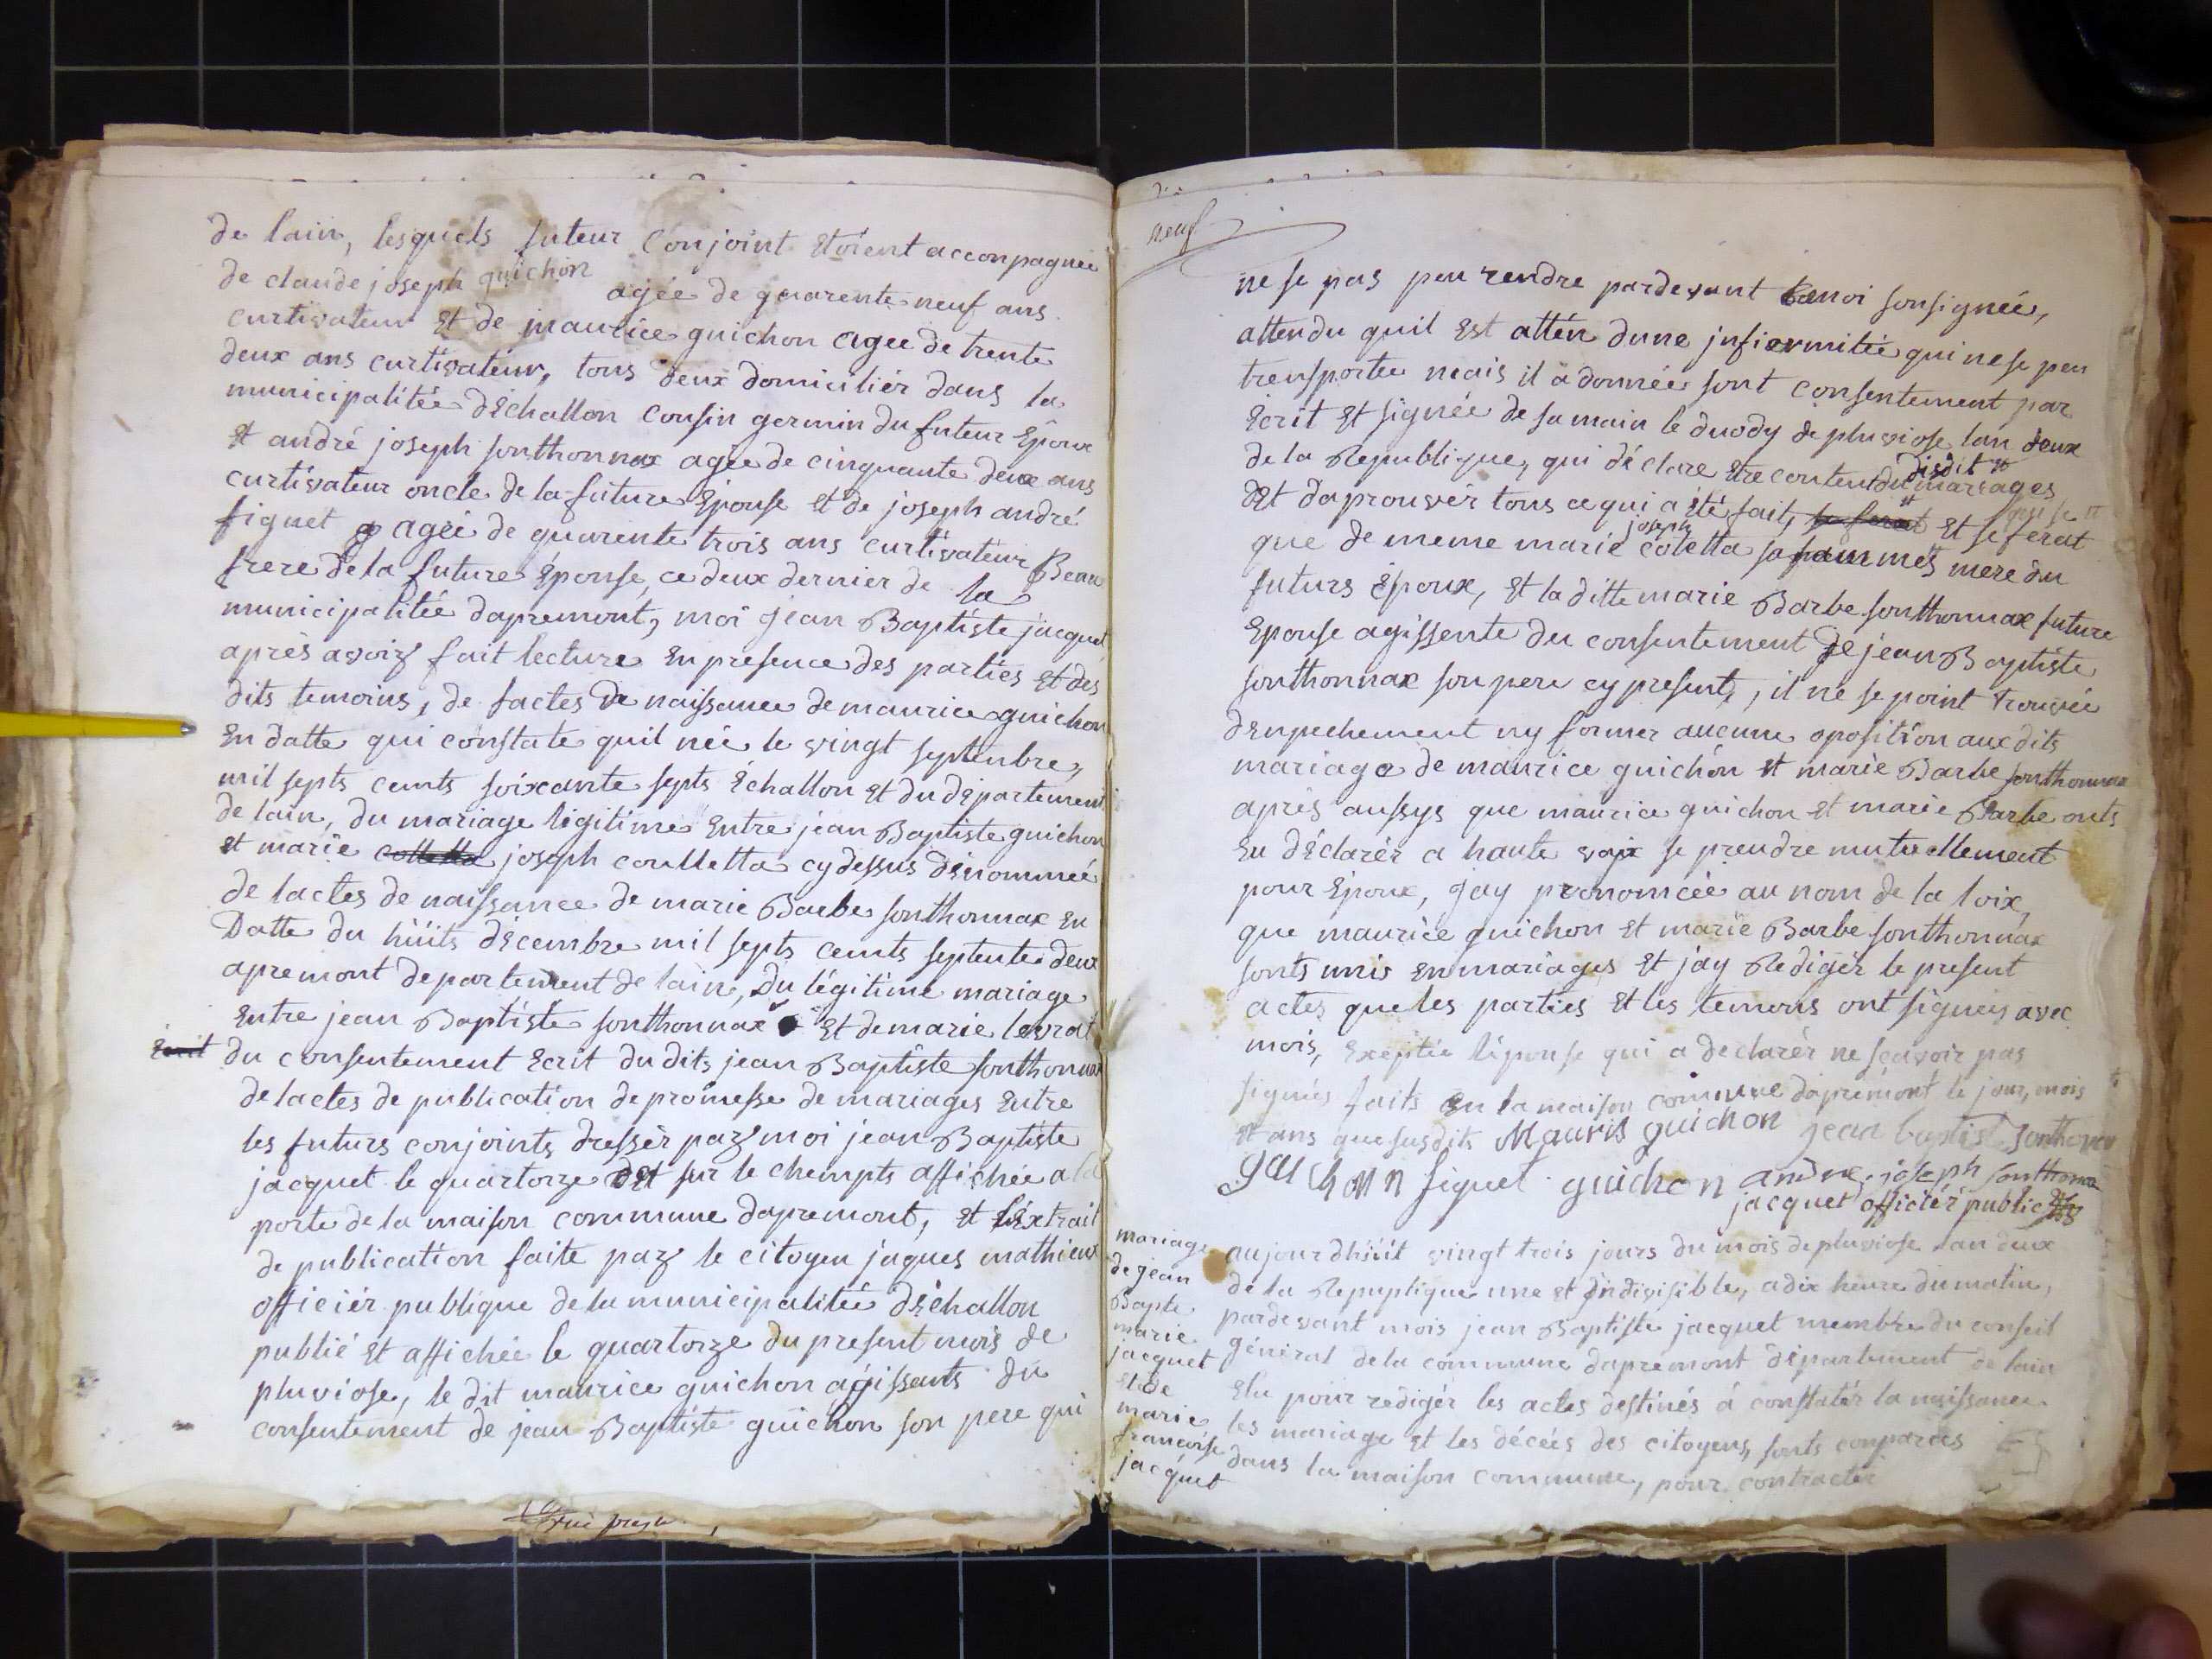 de lain, lesquels futeur Conjoint étoient acconpagnée
de claude joseph guichon agée de quarente neuf ans
curtivateur et de maurice guichon agee de trente
deux ans curtivateur, tous deux domiciliér dans la
municipalitée déchallon cousin germin du futeur Epoux
et andré joseph sonthonnax agée de cinquante deux ans
curtivateur oncle de la future Epouse et de joseph andré
figuet agée de quarente trois ans curtivateur Beau
frere de la future Eponse, ce deux dernier de la
municipalitée dapremont, moi jean Baptiste jacquet
après avoir fait lecture en presence des parties et des
dits temoins, de factes de naissance de maurice guichon
En datte qui constate quil née le vingt septenbre,
mil septs cents soixante septs Échallon et du departement
de lain, du mariage légitime Entre jean Baptiste guichon
et marie colletta joseph coulletta cy dessus dénommée
de lactes de naissance de marie Barbe sonthonnax En
Datte du hüits décembre mil septs cents septente deux
apremont departement de lain, Du légitime mariage
Entre jean Baptiste sonthonnax et de marie levrat
Ecrit du consentement Ecrit du dits jean Baptiste sonthonnax
de lactes de publication de promesse de mariages Entre
les futurs conjoints dressér par moi jean Baptiste
jacquet le quartorze et sur le chempts affichée a la
porte de la maison commune dapremont, et LExtrait
de publication faite par le citoyen jaques mathieux
officiér publique de la municipalitée dÉchallon
publié et affichée le quartorze du present mois de
pluviose, le dit maurice guichon agissants du
consentement de jean Baptiste guichon son pere qui
neuf
ne se pas peu rendre pardevant moi sonsignée,
attendu quil Est attén dune infiermitée qui ne se peu
tresporter mais il a donnée sont consentement par
Ecrit et signée de sa main le duody de pluviose lan deux
de la Republique, qui déclare Etre content du disdit mariages
et daprouvér tous ce qui a été fait, et se ferat
que de meme marie joseph coletta sa fammes mere du
futurs Époux, et la ditte marie Barbe sonthonnax future
Epouse agissente du consentement de jean Baptiste
sonthonnax son pere cy present, il ne se point trouvée
dEnpechement ny former aucune oposition aux dits
mariage de maurice guichon et marie Barbe sonthonnax
aprés aussys que maurice guichon et marie Barbe onts
Eu déclarér a haute voix se prendre mutuellement
pour Epoux, jay pronomcée au nom de la loix,
que maurice guichon et marie Barbe sonthonnax
sonts unis En mariages et jay Redigér le present
actes que les parties et les temoins ont signeés avec
mois, Exeptée léponse qui a declarér ne sçavoir pas
signés faits En la maison commune dapremont le jour, mois
et ans que susdits Mauris guichon jean baptiste Sonthonax
guichon figuet guichon andre joseph sonthonax
jacquet officiér public
mariage
de jean
Bapte
marie
jacquet
et de
marie
francoise
jacquet
aujourdhüit vingt trois jours du mois de pluviose lan deux
de la Repuplique une et indivisible, a dix heure du matin,
pardevant mois jean Baptiste jacquet membre du conseil
général de la commune dapremont département de lain
Elu pour rédigér les actes destinés á constatér la naissance
les mariage et les décées des citoyens, sonts conparues
dans la maison commune, pour contractér